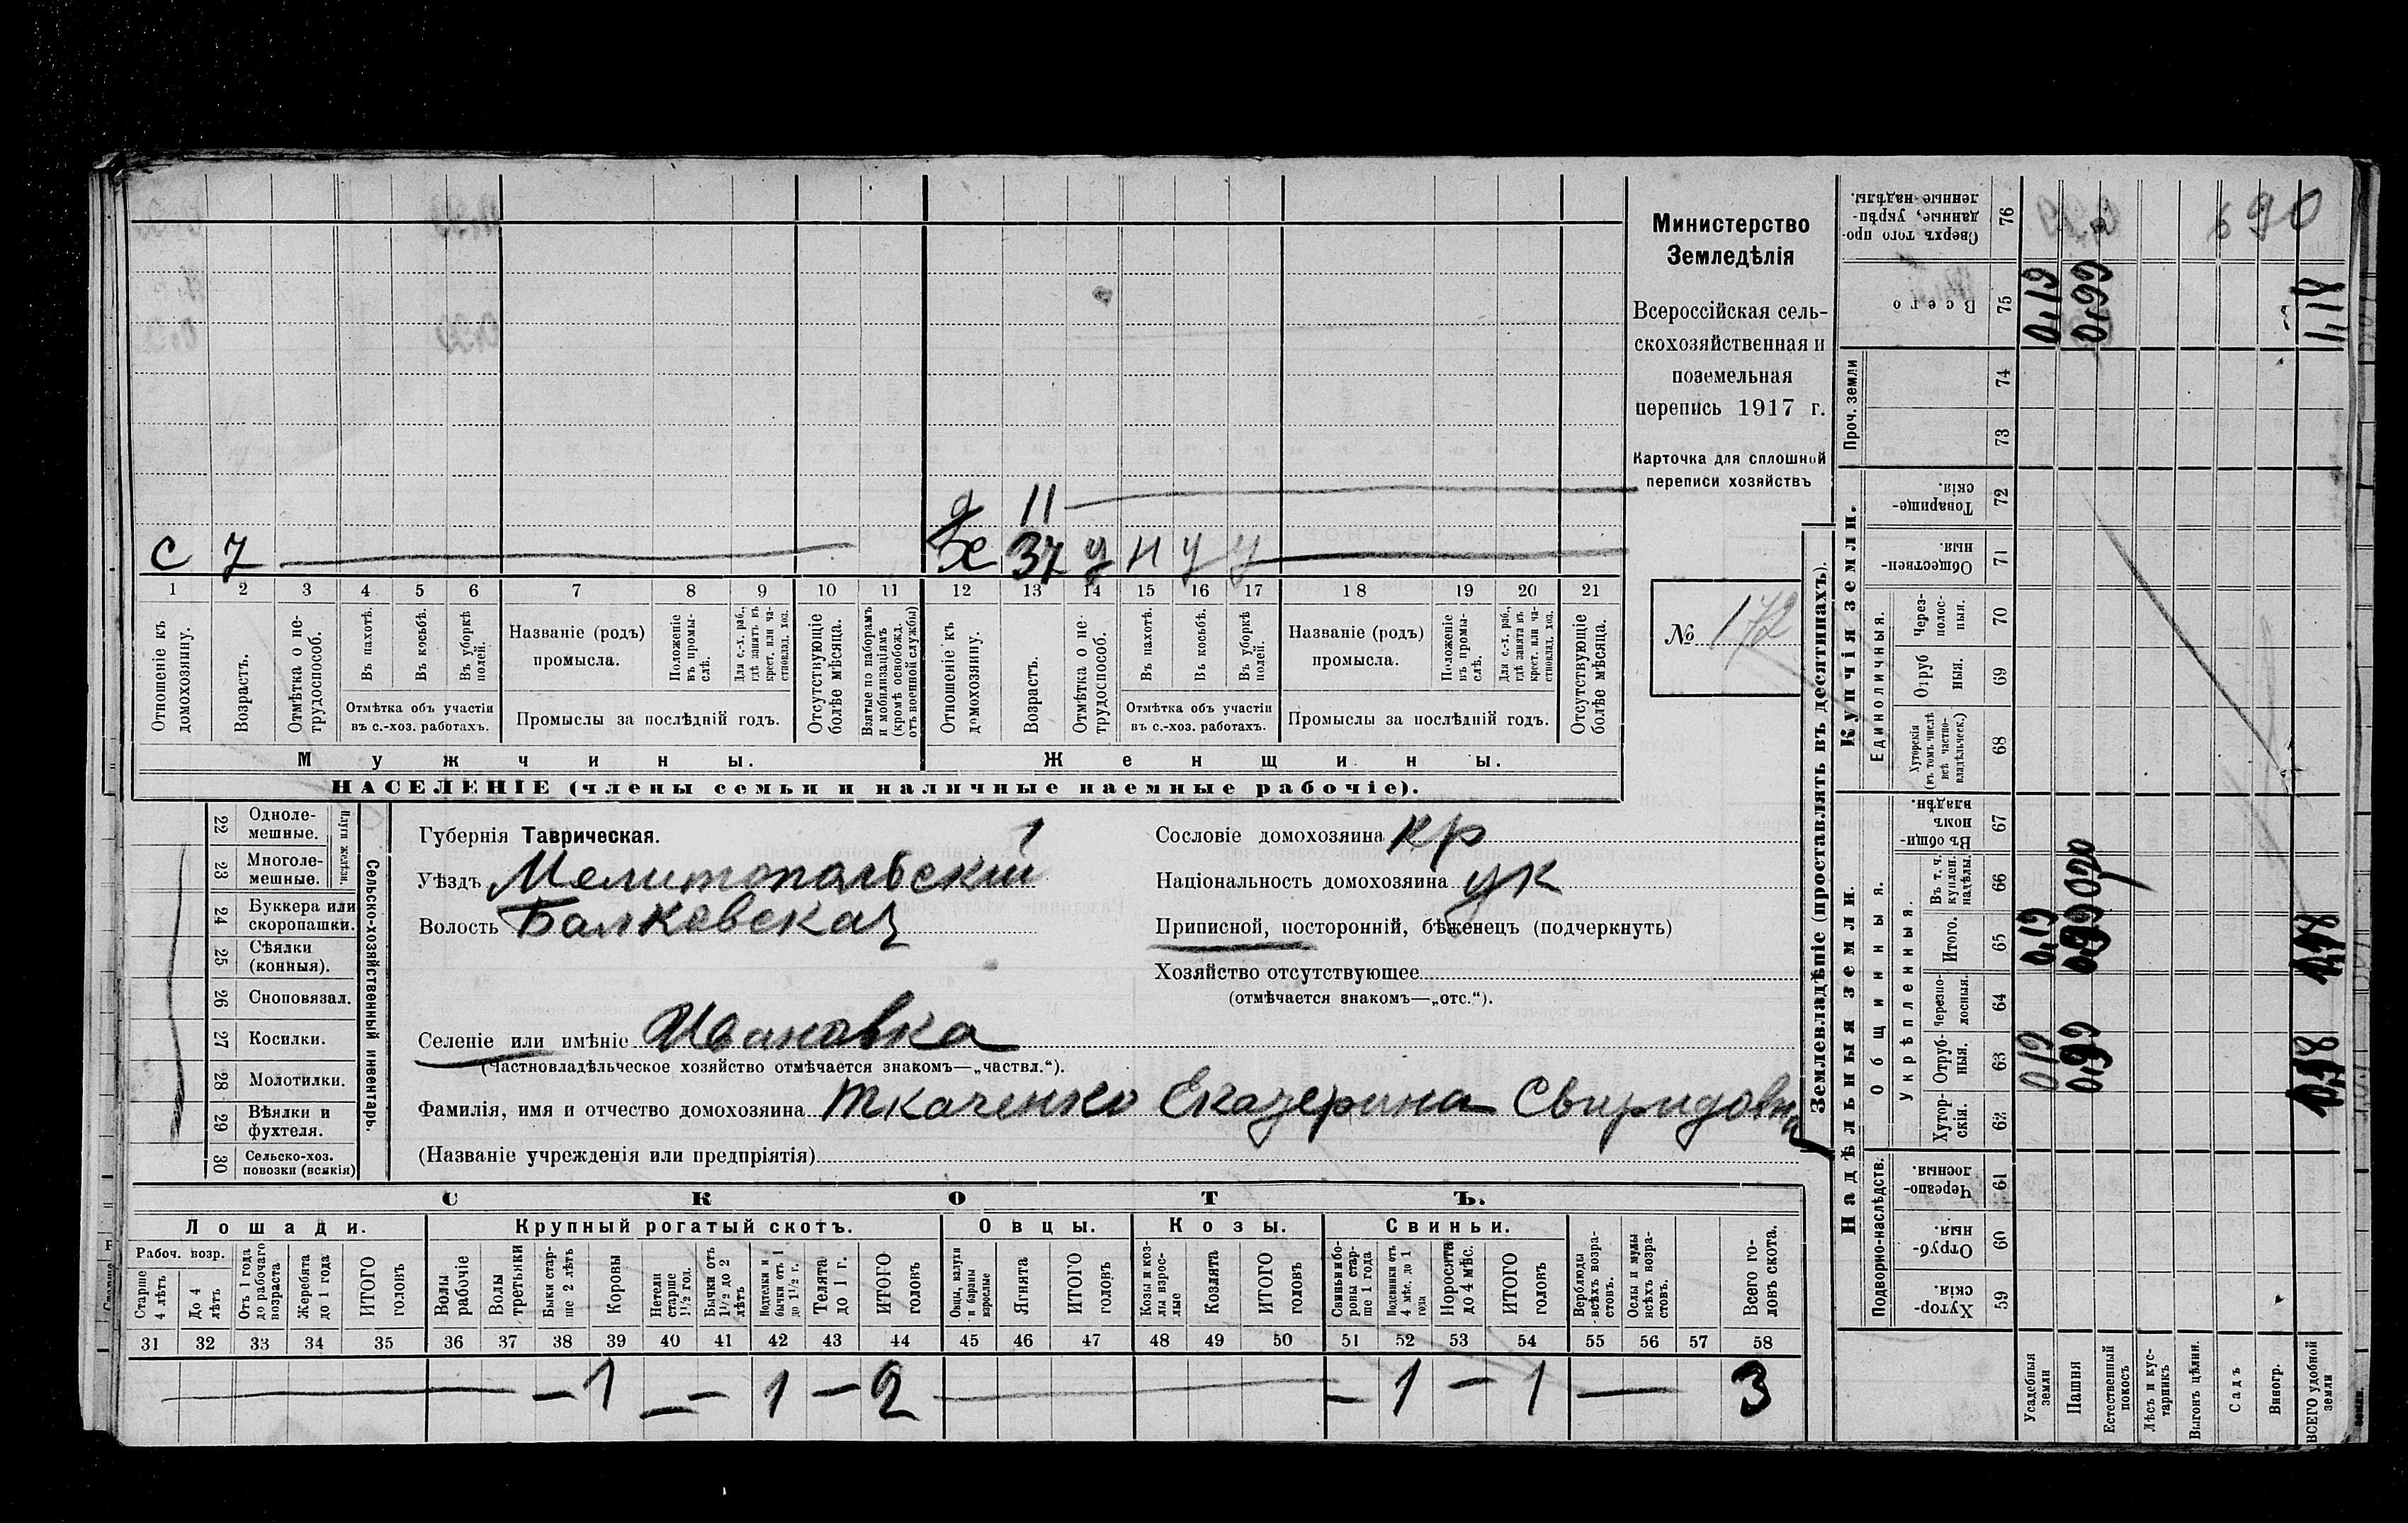 д 11
с 7 х 37 у н у у
1 2 3 4 5 6 7 8 9 10 11 12 13 14 15 16 17 18 19 20 21
Отношеніе къ домохозяину.
Возрастъ.
Отмѣтка о не-
трудоспособ.
Въ пахотѣ.
Въ косьбѣ.
Въ уборкѣ
полей.
Отмѣтка объ участіи
въ с.-хоз. работахъ.
Названіе (родъ)
промысла.
Положеніе
въ промы-
слѣ.
Для с.-х. раб.,
гдѣ занятъ въ
крест. или ча-
стновлад. хоз.
Промыслы за послѣдній годъ.
Отсутствующіе
болѣе мѣсяца.
Взятые по наборамъ
и мобилизаціямъ
(кромѣ освобожд.
отъ военной службы)
Отношеніе къ
домохозяину.
Возрастъ.
Отмѣтка о не-
трудоспособ.
Въ пахотѣ.
Въ косьбѣ.
Въ уборкѣ
полей.
Отмѣтка объ участіи
въ с.-хоз. работахъ.
Названіе (родъ)
промысла.
Положеніе
въ промы-
слѣ.
Для с.-х. раб.,
гдѣ занята въ
крест. или ча-
стновлад. хоз.
Промыслы за послѣдній годъ.
Отсутствующіе
болѣе мѣсяца.
Мужчины.
Женщины.
НАСЕЛЕНІЕ (члены семьи и наличные наемные рабочіе).
Министерство
Земледѣлія
Всероссійская сель-
скохозяйственная и
поземельная
перепись 1917 г.
Карточка для сплошной
переписи хозяйствъ
№ 172
22 Одноле-
мешные.
23 Многоле-
мешные.
Плуги желѣзн.
24 Буккера или
скоропашки.
25 Сѣялки
(конныя).
26 Сноповязал.
27 Косилки.
28 Молотилки.
29 Вѣялки и
фухтеля.
30 Сельско-хоз.
повозки (всякія)
Сельско-хозяйственный инвентарь.
Губернія Таврическая.
Уѣздъ Мелитопольскій
Волость Балковская
Селеніе или имѣніе Ивановка
(Частновладѣльческое хозяйство отмѣчается знакомъ—„частвл.“).
Фамилія, имя и отчество домохозяина Ткаченко Екатерина Свиридовна
(Названіе учрежденія или предпріятія)
Сословіе домохозяина кр
Національность домохозяина ук
Приписной, посторонній, бѣженецъ (подчеркнуть)
Хозяйство отсутствующее
(отмѣчается знакомъ—„отс.“).
СКОТЪ.
Лошади.
Крупный рогатый скотъ.
Овцы.
Козы.
Свиньи.
Рабоч. возр.
Старше
4 лѣтъ
До 4
лѣтъ
Отъ 1 года
до рабочаго
возраста
Жеребята
до 1 года
ИТОГО
головъ
Волы
рабочіе
Волы
третьяки
Быки стар-
ше 2 лѣтъ
Коровы
Нетели
старше
1½ год.
Бычки отъ
1½ до 2
лѣтъ
Подтелки и
бычки отъ 1
до 1½ г.
Телята
до 1 г.
ИТОГО
головъ
Овцы, валухи
и бараны
взрослые
Ягнята
ИТОГО
головъ
Козы и коз-
лы взрос-
лые
Козлята
ИТОГО
головъ
Свиньи и бо-
ровы стар-
ше 1 года
Подсвинки отъ
4 мѣс. до 1
года
Поросята
до 4 мѣс.
ИТОГО
головъ
Верблюды
всѣхъ возра-
стовъ.
Ослы и мулы
всѣхъ возра-
стовъ.
Всего го-
ловъ скота.
31 32 33 34 35 36 37 38 39 40 41 42 43 44 45 46 47 48 49 50 51 52 53 54 55 56 57 58
1 1 2 1 1 3
Землевладѣніе (проставлять въ десятинахъ).
Надѣльныя земли.
Купчія земли.
Проч. земли
Подворно-наслѣдств.
Общинныя.
Укрѣпленныя.
Единоличныя.
59 Хутор-
скія.
60 Отруб-
ныя.
61 Черезпо-
лосныя.
62 Хутор-
скія.
63 Отруб-
ныя.
64 Черезпо-
лосныя.
65 Итого.
66 Въ т. ч.
куплен.
надѣлы.
67 Въ общи-
номъ
владѣн.
68 Хуторскія
(въ томъ числѣ
всѣ частно-
владѣльческ.)
69 Отруб
ныя.
70 Через-
полос-
ныя.
71 Обществен-
ныя.
72 Товарище-
скія.
73
74
75 Всего
76 Сверхъ того про-
данные, укрѣп-
ленные надѣлы.
Усадебныя
земли
0,19 0,19 0,19
Пашня
0,99 0,99
Естественный
покосъ
Лѣсъ и кус-
тарникъ
Выгонъ цѣлин.
Садъ
Виногр.
ВСЕГО удобной
земли
1,18 1,18 1,18
690